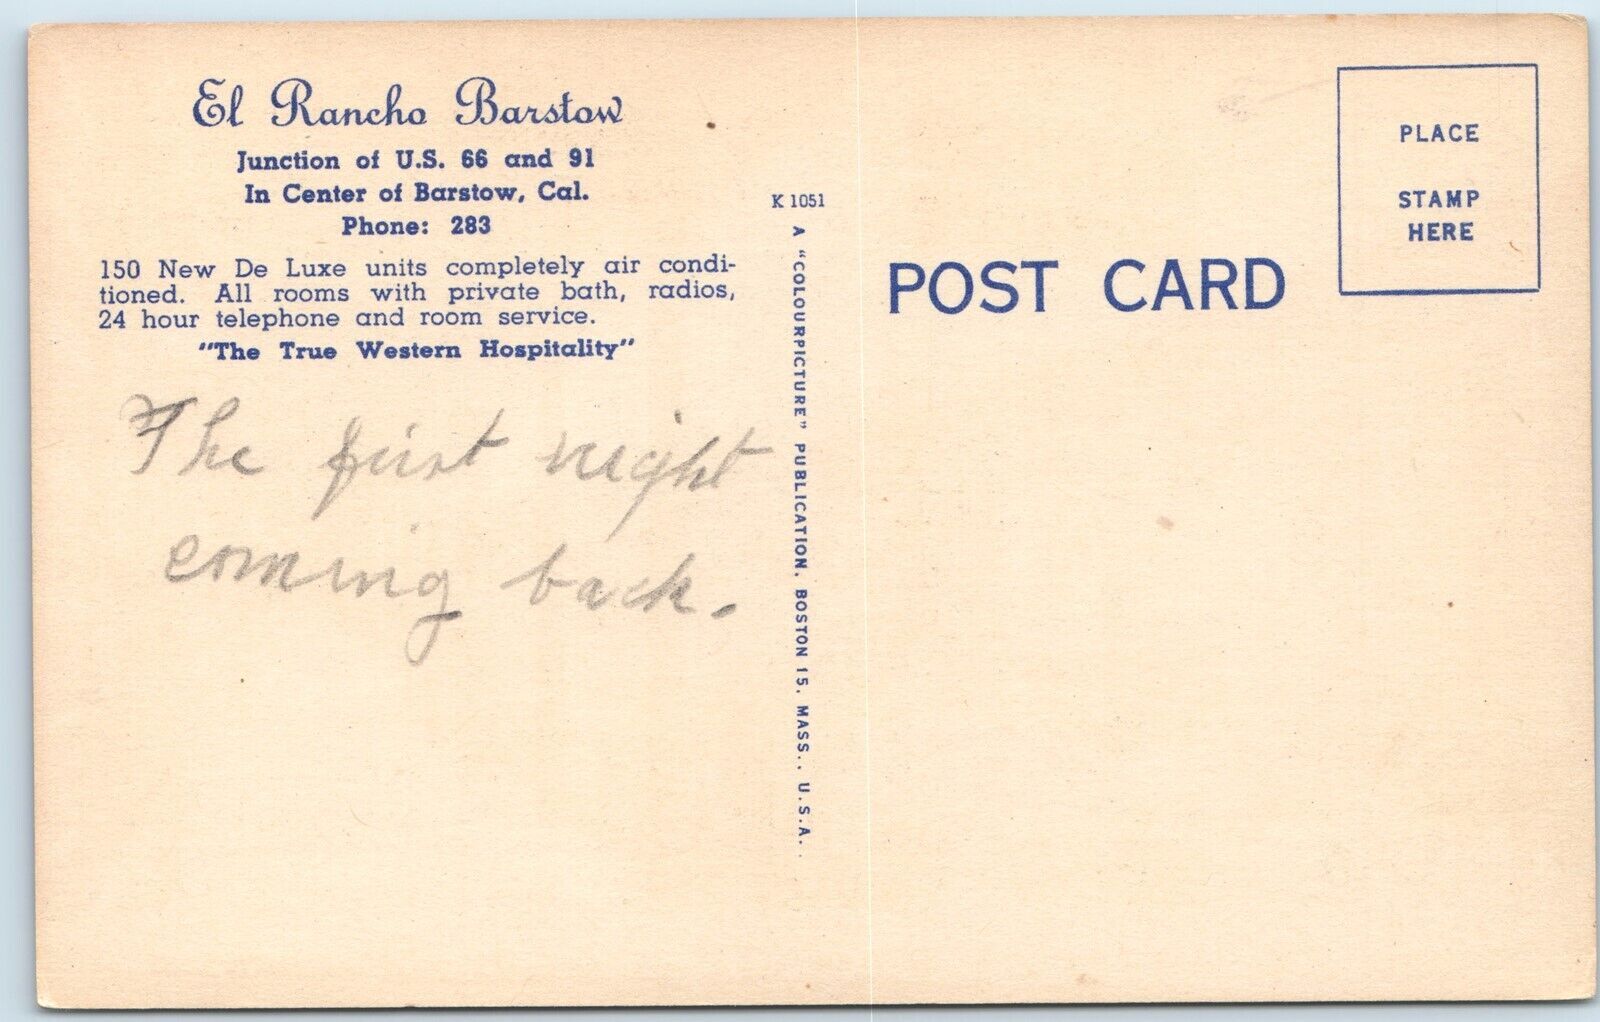 El Rancho Barstow
Junction of U.S. 66 and 91
In Center of Barstow, Cal.
Phone: 283
150 New De Luxe units completely air condi-
tioned. All rooms with private bath, radios,
24 hour telephone and room service.
"The True Western Hospitality"
The first night
coming back.
K 1051
A "COLOURPICTURE" PUBLICATION, BOSTON 15, MASS., U.S.A.
POST CARD
PLACE
STAMP
HERE